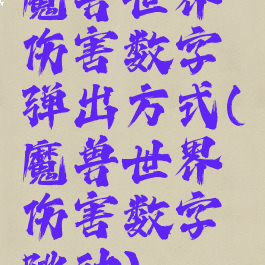 魔兽世界
伤害数字
弹出方式(
魔兽世界
伤害数字
跳动)